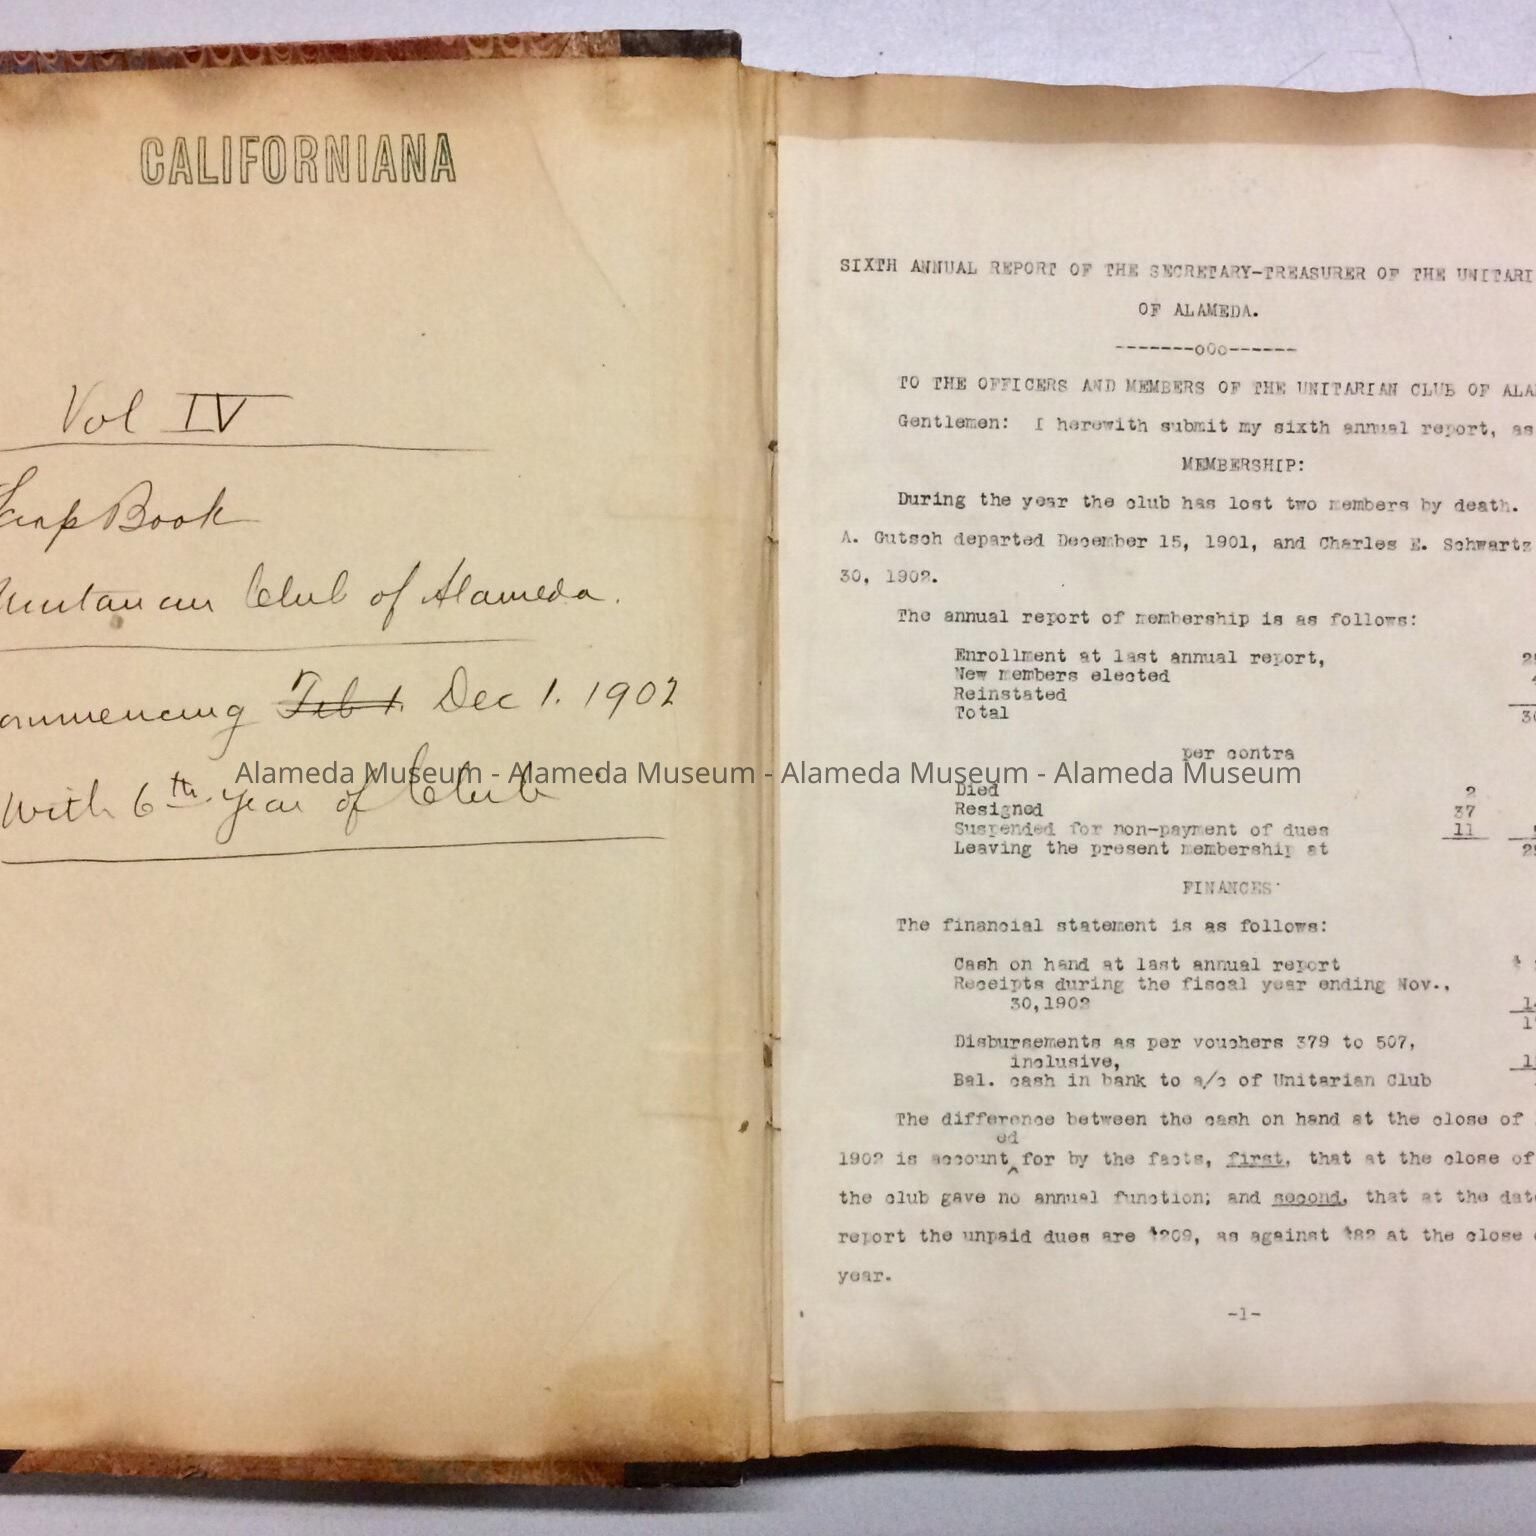 CALIFORNIANA
Vol IV
Book
Club of Alameda.
Feb 1. Dec 1. 1902
With 6th year of Club
SIXTH ANNUAL REPORT OF THE SECRETARY-TREASURER OF THE UNITARI
OF ALAMEDA.
-------o0o------
TO THE OFFICERS AND MEMBERS OF THE UNITARIAN CLUB OF ALA
Gentlemen: I herewith submit my sixth annual report, as
MEMBERSHIP:
During the year the club has lost two members by death.
A. Gutsch departed December 15, 1901, and Charles E. Schwartz
30, 1902.
The annual report of membership is as follows:
Enrollment at last annual report,
New members elected
Reinstated
Total
per contra
Alameda Museum - Alameda Museum - Alameda Museum - Alameda Museum
Died 2
Resigned 37
Suspended for non-payment of dues 11
Leaving the present membership at
FINANCES
The financial statement is as follows:
Cash on hand at last annual report
Receipts during the fiscal year ending Nov.,
30,1902
Disbursements as per vouchers 379 to 507,
inclusive,
Bal. cash in bank to a/c of Unitarian Club
The difference between the cash on hand at the close of
ed
1902 is account^for by the facts, first, that at the close of
the club gave no annual function; and second, that at the date
report the unpaid dues are $209, as against $82 at the close
year.
-1-